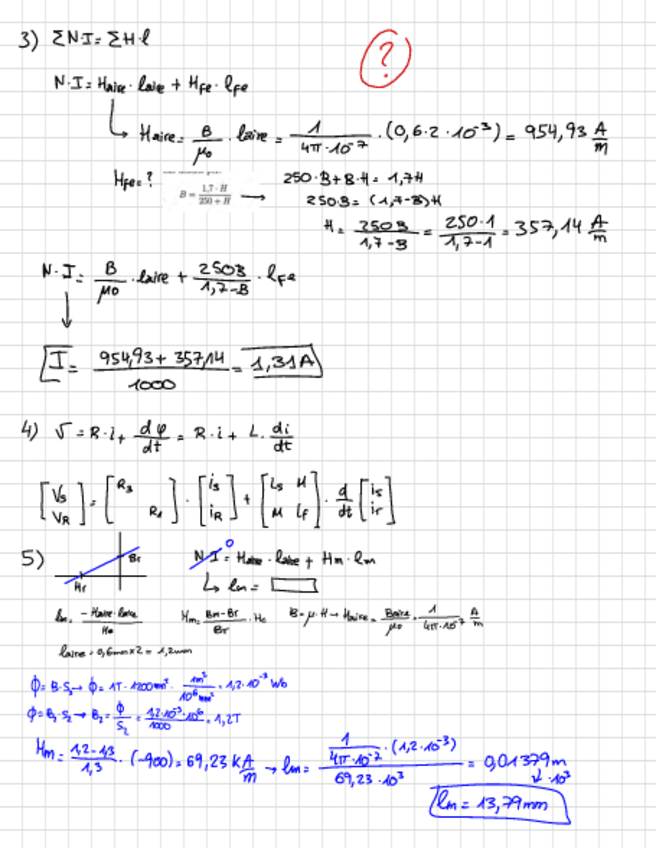 3) ΣN·I = ΣH·l
?
N·I = Haire · laire + HFe · lFe
↳ Haire = B/μ0 · laire = 1/(4π·10^-7) · (0,6·2·10^-3) = 954,93 A/m
HFe = ? B = 1,7·H/(250+H) → 250·B + B·H = 1,7H
250B = (1,7-B)H
H = 250B/(1,7-B) = 250·1/(1,7-1) = 357,14 A/m
N·I = B/μ0 · laire + 250B/(1,7-B) · lFe
↓
I = (954,93 + 357,14)/1000 = 1,31A
4) V = R·i + dφ/dt = R·i + L·di/dt
[Vs VR] = [R3 R1] · [is iR] + [Ls M M Lf] · d/dt [is ir]
5) Br Hr N·I 0 = Haire · laire + Hm · lm
↳ lm =
lm = -Haire·laire/Ho Hm = (Bm-Br)/Br · Hc B = μ·H → Haire = Baire/μ0 = 1/(4π·10^-7) A/m
laire = 0,6mm x 2 = 1,2mm
Φ = B·S1 → Φ = 1T · 1200mm² · 1m²/10^6 mm² = 1,2·10^-3 Wb
Φ = B2·S2 → B2 = Φ/S2 = 1,2·10^-3·10^6/1000 = 1,2T
Hm = (1,2-1,3)/1,3 · (-900) = 69,23 kA/m → lm = (1/(4π·10^-7) · (1,2·10^-3))/(69,23·10^3) = 0,01379m
↓ ·10³
lm = 13,79mm